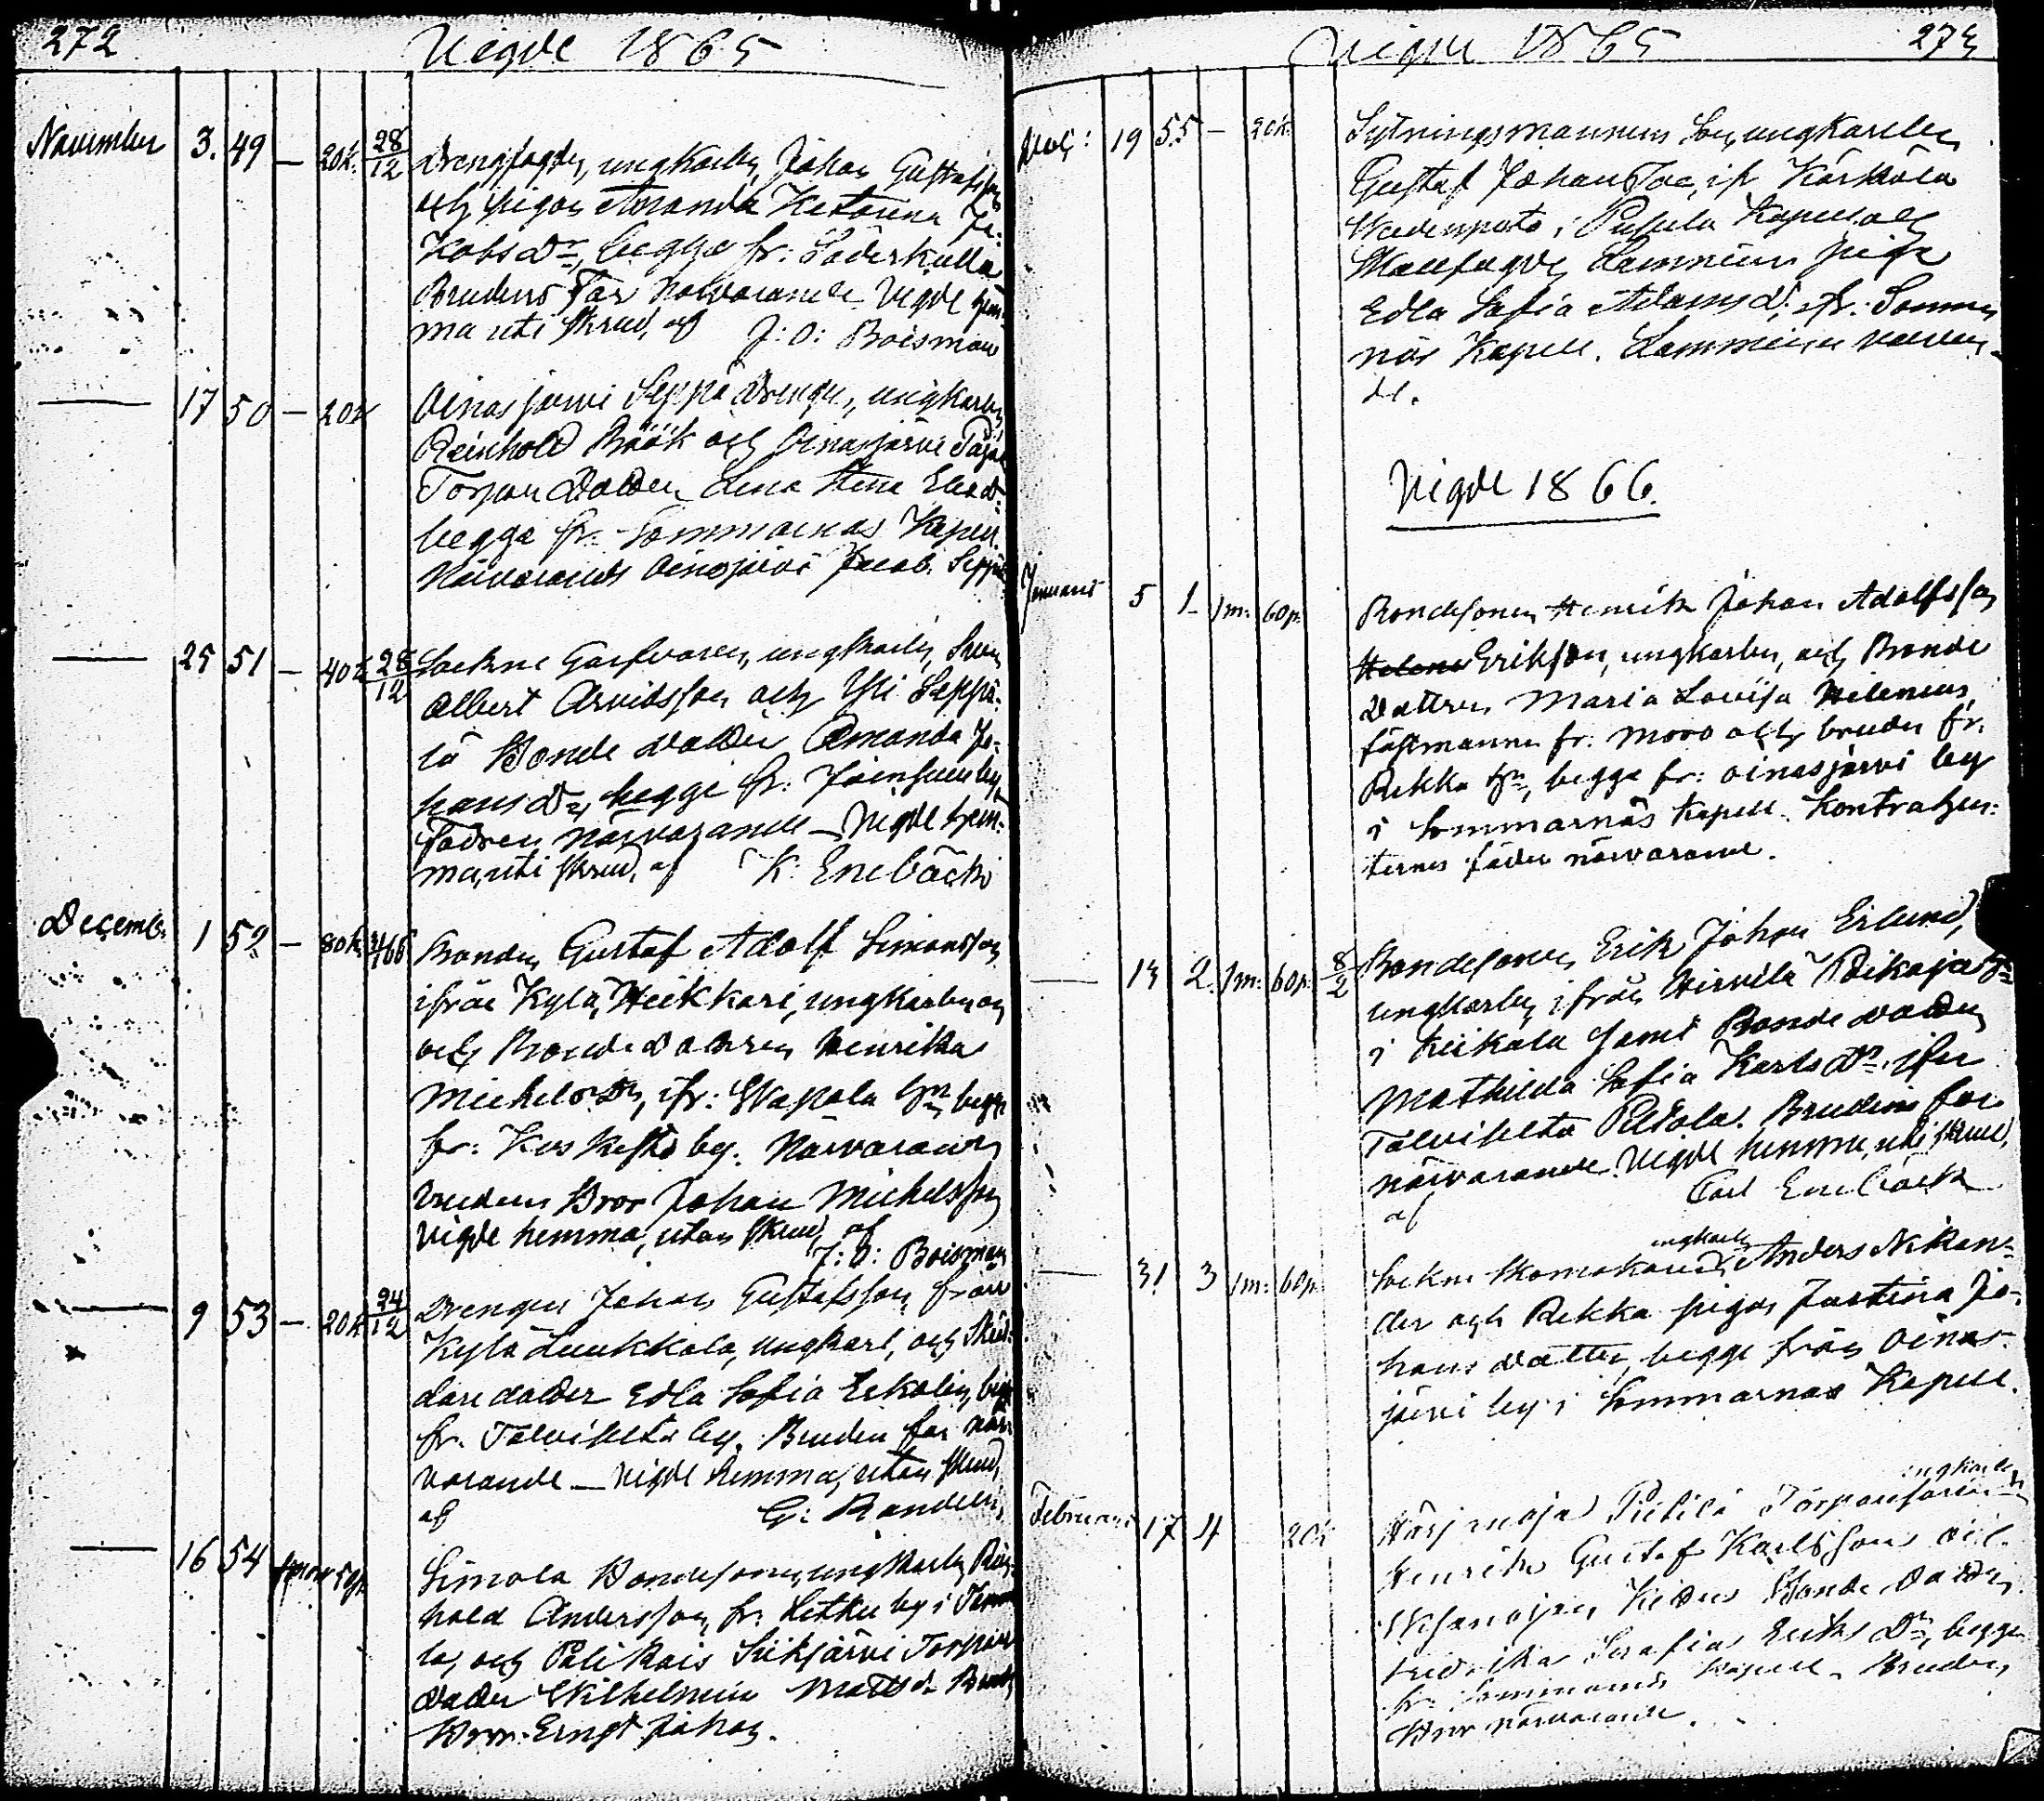 272 Vigde 1865
November 3. 49 – 20k. 28/12 Drengfogden, ungkarlen, Johan Gustafsson
och pigan Amanda Katarina Ja-
kobsdr, begge fr: Söderkulla
Brudens Far närvarande Vigde hem-
ma uti skrud, af J: O: Boisman
— 17 50 – 20k Oinasjärvi Seppä Drengen, ungkarlen
Reinhold Böök och Oinasjärvi
Torpare Dotter Lena Stina
begge fr. Sommarnäs Kapell.
Närvarande Oinasjärvi Jacob Seppä
— 25 51 – 40k 28/12 Sockne Garfvaren, ungkarlen, Sven
Albert Arvidsson och Yli Seppä-
lä Bonde dotter Amanda Jo-
hansdr, begge fr.
Fadren närvarande – Vigde hem-
ma, uti skrud, af K: Enebäck
Decemb. 1 52 – 80k Bonden Gustaf Adolf Simonsson
ifrån Kylä Heikkari, ungkarlen
och Bonde Dottren Henrika
Michelsdr, ifr: Skapola hn, begge
fr: Koskesta by. Närvarande
brudens Bror Johan Michelsson
Vigde hemma, utan skrud, af
J: O: Boisman
— 9 53 – 20k 24/12 Drengen Johan Gustafsson från
Kylä Luukkala, ungkarl, och
dare dotter Edla Sofia Eckolin, begge
fr. Talvisilta by. Bruden far när-
varande – Vigde hemma, utan skrud,
af G: Randelin
— 16 54 Simola Bondesonen, ungkarlen Rein-
hold Andersson, fr. Letku by i
la, och Palikais Siikjärvi Torpare
dotter Wilhelmina Mattsdr
Bror Ernst Johan.
Vigde 1865 273
Nov: 19 55 – 20k. Sytningsmannens Son, ungkarlen
Gustaf Johansson, ifr Kärkölä
i Pusula Kapell och
Skallfogde Lammein piga
Edla Sofia Adamsd: fr: Sommar-
näs Kapell. Lammein närvaran-
de.
Vigde 1866.
Januari 5 1 1m: 60p. Bondesonen Henrik Johan Adolfsson
Helene Eriksson, ungkarlen, och Bonde
Dottren Maria Lovisa Helenius,
fästmannen fr. Moro och bruden fr.
Rekka hn, begge fr: Oinasjärvi by
i Sommarnäs Kapell. Kontrahen-
ternes fäder närvarande.
— 14 2. 1m: 60p. 8/2 Bondesonen Erik Johan Erlund,
ungkarlen, ifrån Hirvelä Pikaja hn
i Kiikala samt Bonde dotter
Mathilda Sofia Karlsdr ifrån
Talvisilta Pietola. Brudens far
närvarande. Vigde hemma, uti skrud,
af Carl Enebäck
— 31 3 1m: 60p. Sockne Skomakaren, ungkarlen Anders Nikan-
der och Rekka pigan Justina Jo-
hans dotter, begge från Oinas-
järvi by i Sommarnäs Kapell.
Februari 17 4 20k Härjanoja Pietilä Torparesonen ungkarlen
Henrik Gustaf Karlsson och
Bonde dotter
Serafia Eriks Dr, begge
fr. Sommarnäs Kapell. Brudens
Bror närvarande.